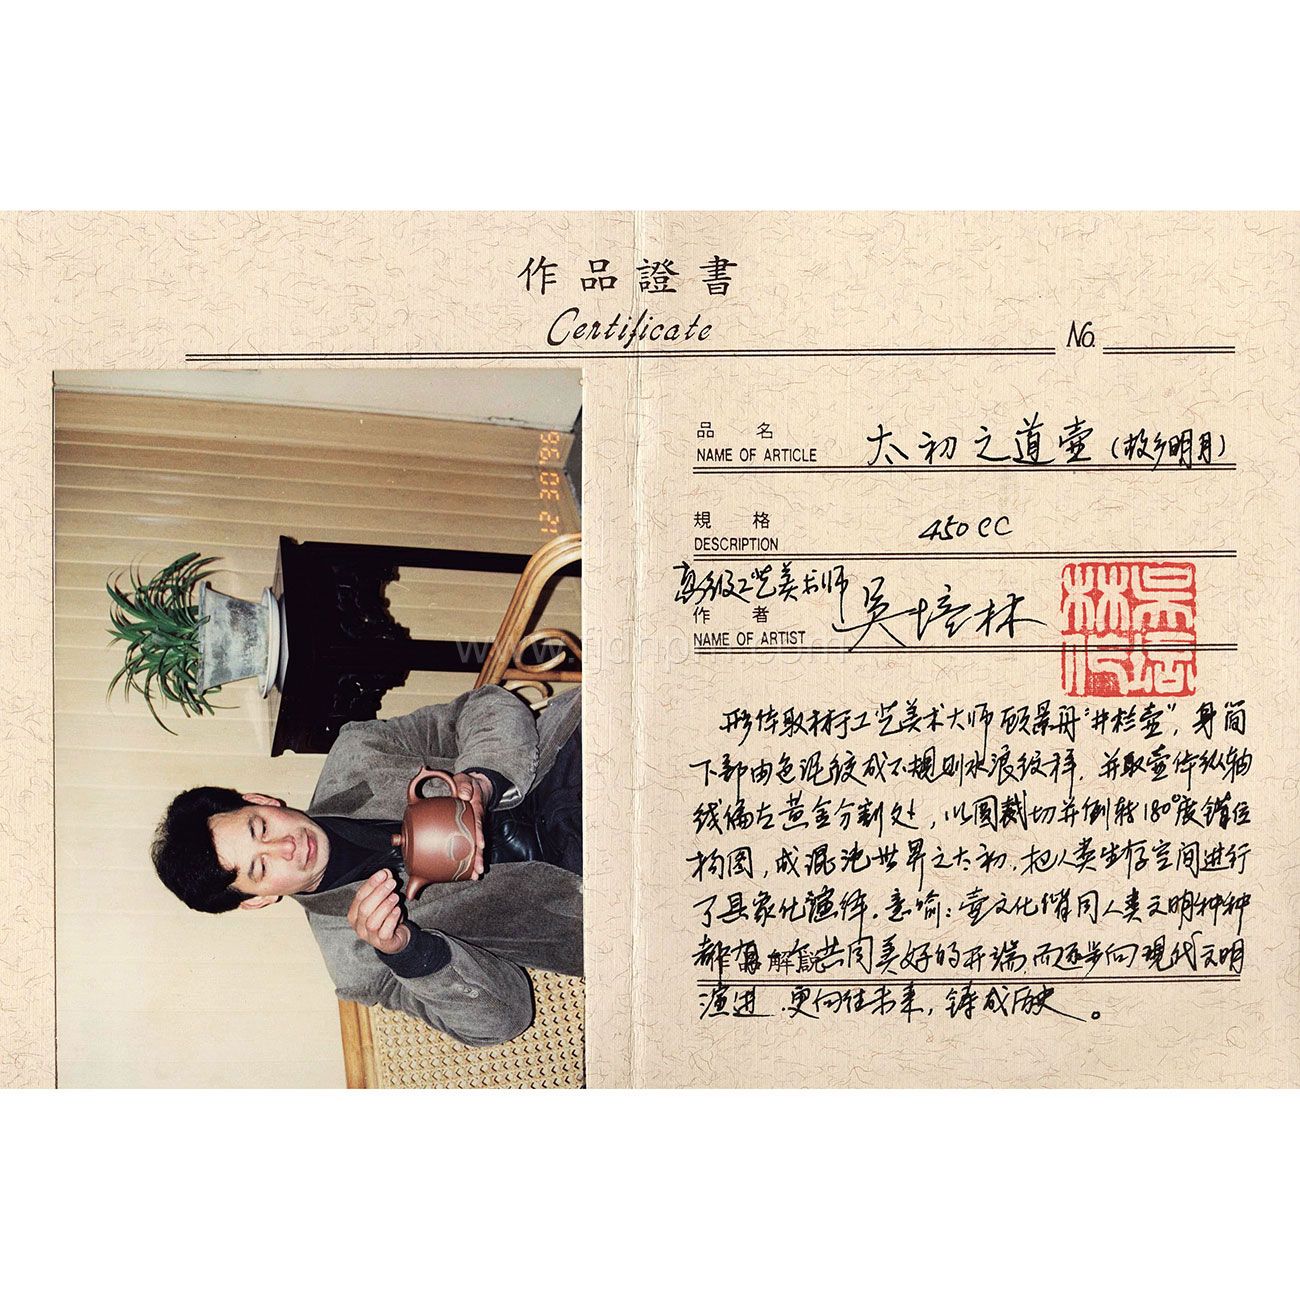 作品證書
Certificate
No.
12 30 '96
品 名
NAME OF ARTICLE 太初之道壶(故乡明月)
規 格
DESCRIPTION 450cc
高级工艺美术师
作 者
NAME OF ARTIST 吴培林
吴培林印
形体取材于工艺美术大师顾景舟"井栏壶",身筒
下部由色泥绞成不规则水浪纹样,并取壶体纵轴
线偏左黄金分割处,以圆裁切并倒转180°度错位
构图,成混沌世界之太初,把人类生存空间进行
了具象化演绎.意喻:壶文化偕同人类文明种种
都有一个共同美好的开端,而逐步向现代文明
解說
演进.更向往未来,铸成历史。